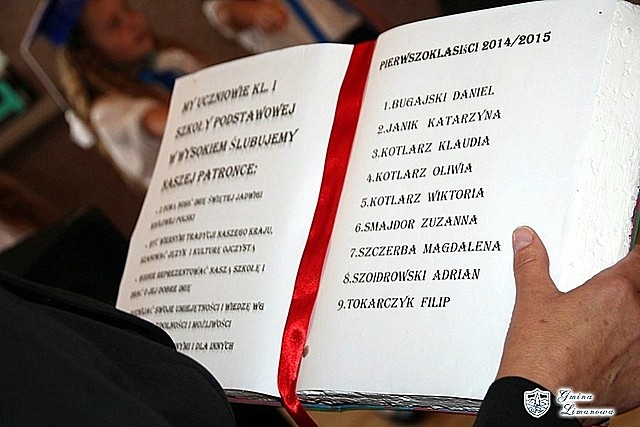 MY UCZNIOWIE KL. I
SZKOŁY PODSTAWOWEJ
W WYSOKIEM ŚLUBUJEMY
NASZEJ PATRONCE:
- Z DUMĄ NOSIĆ IMIĘ ŚWIĘTEJ JADWIGI
KRÓLOWEJ POLSKI
- BYĆ WIERNYMI TRADYCJI NASZEGO KRAJU,
SZANOWAĆ JĘZYK I KULTURĘ OJCZYSTĄ
- WIERNIE REPREZENTOWAĆ NASZĄ SZKOŁĘ I
DBAĆ O JEJ DOBRE IMIĘ
SWOJE UMIEJĘTNOŚCI I WIEDZĘ WG
ZDOLNOŚCI I MOŻLIWOŚCI
I DLA INNYCH
PIERWSZOKLASIŚCI 2014/2015
1.BUGAJSKI DANIEL
2.JANIK KATARZYNA
3.KOTLARZ KLAUDIA
4.KOTLARZ OLIWIA
5.KOTLARZ WIKTORIA
6.SMAJDOR ZUZANNA
7.SZCZERBA MAGDALENA
8.SZOIDROWSKI ADRIAN
9.TOKARCZYK FILIP
Gmina
Limanowa